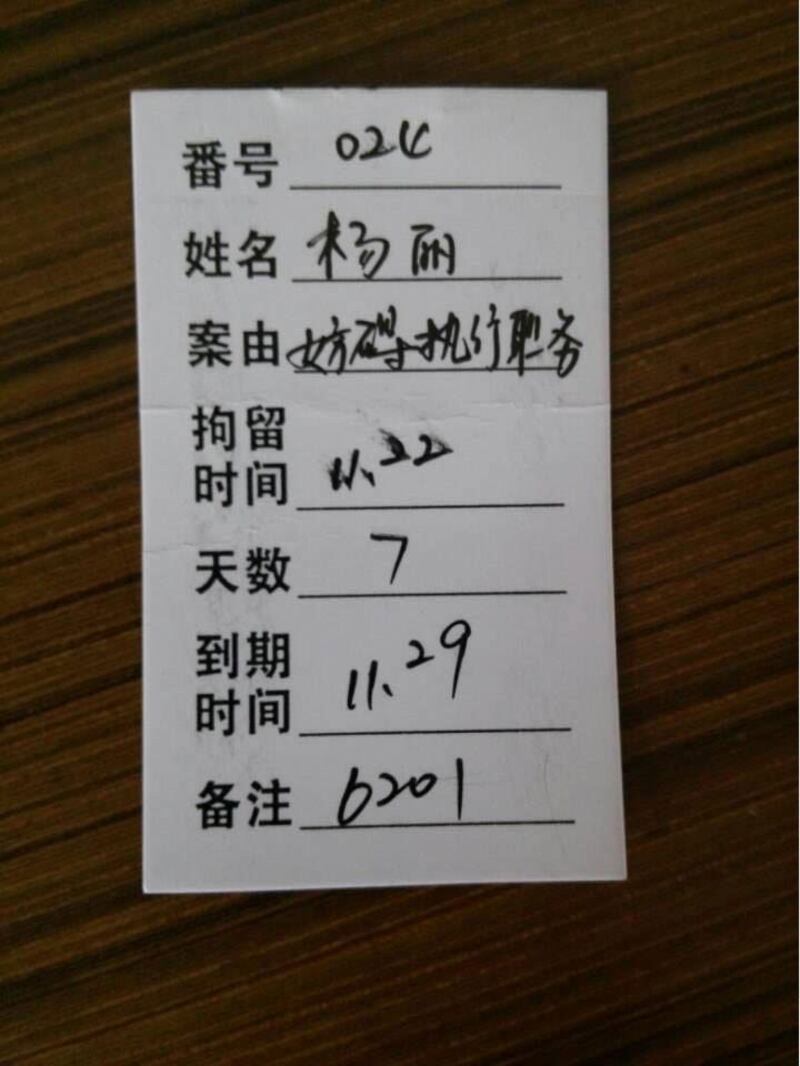 番号 024
姓名 杨丽
案由 妨碍执行职务
拘留
时间 11.22
天数 7
到期
时间 11.29
备注 6201